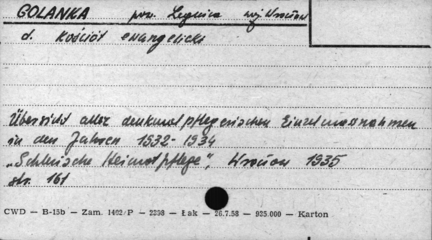 GOLANKA pow. Legnica woj. Wrocław
d. Kościół ewangelicki
Übersicht aller denkmalpflegerischen Einzelmaßnahmen
in den Jahren 1932-1934
„Schlesische Heimatpflege", Wrocław 1935
str. 161
CWD — B-15b — Zam. 1402/P — 2238 — Łak — 26.7.58 — 925.000 — Karton